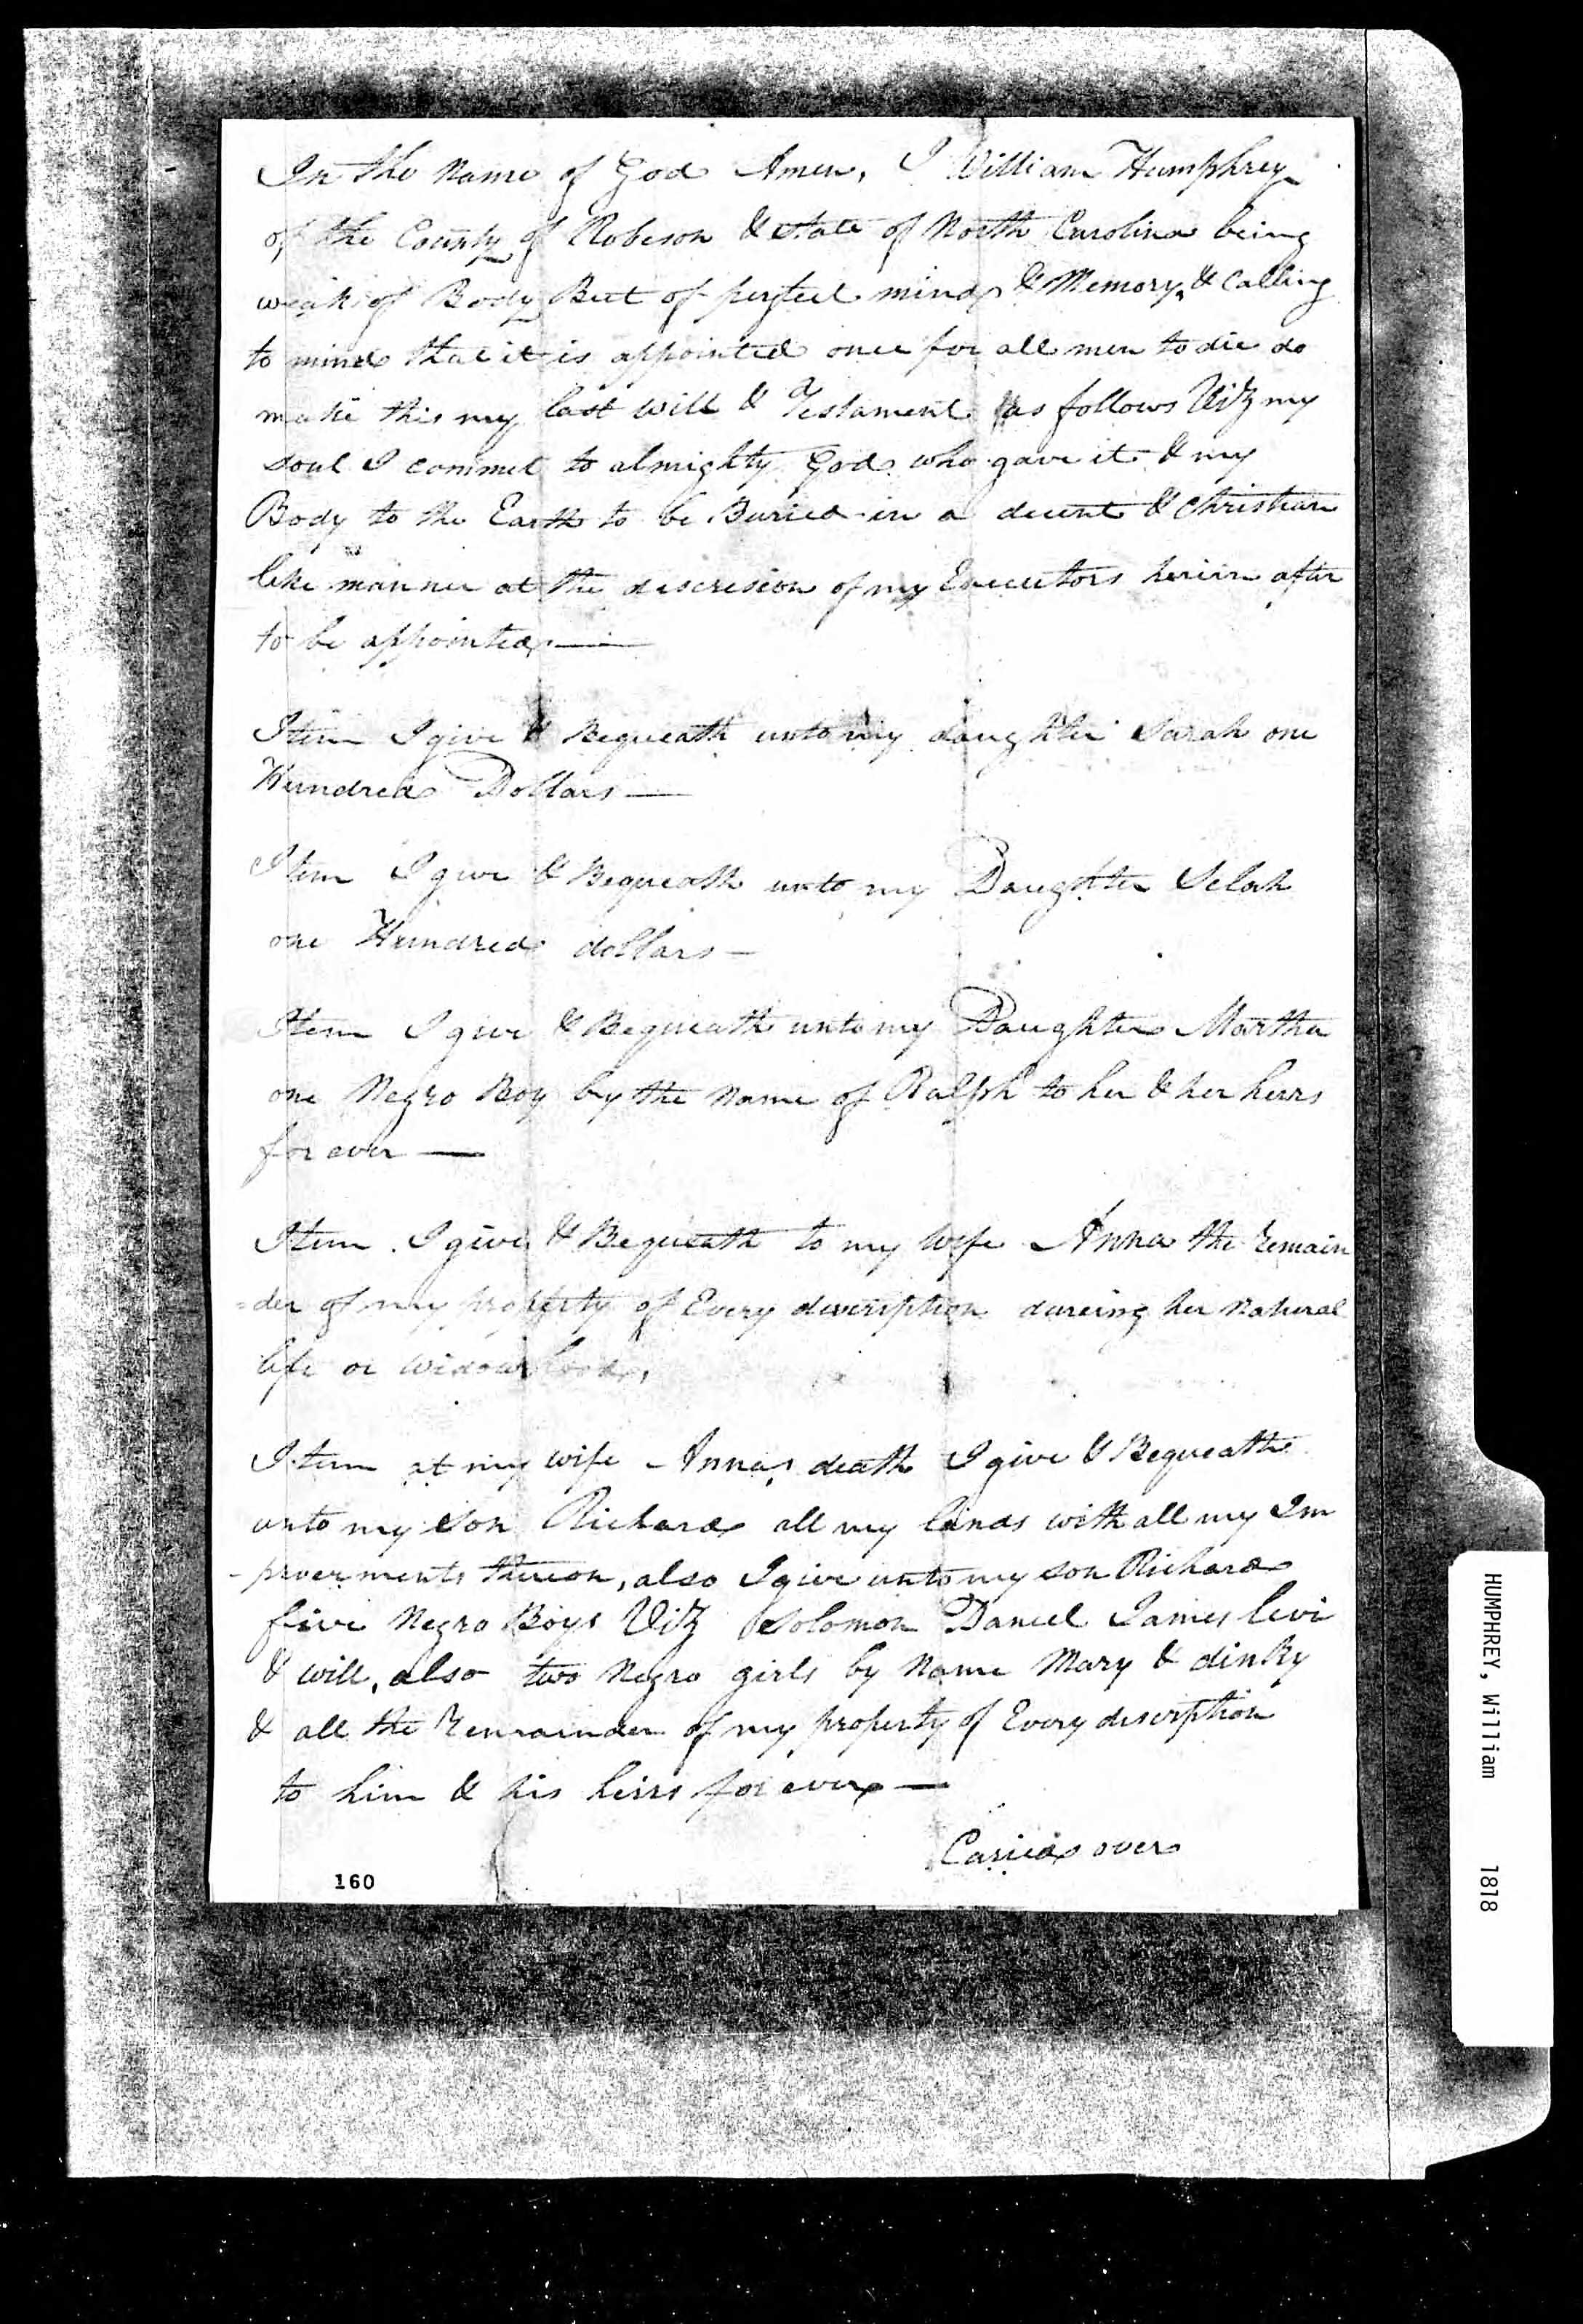 In the Name of God Amen, I William Humphrey
of the County of Robeson & State of North Carolina being
weak of Body But of perfect mind & Memory, & Calling
to mind that it is appointed once for all men to die do
make this my last will & Testament as follows Viz my
soul I commit to almighty God who gave it & my
Body to the Earth to be Buried in a decent & Christian
like manner at the discresion of my Executors herein after
to be appointed —
Item I give & Bequeath unto my daughter Sarah one
Hundred Dollars —
Item I give & Bequeath unto my Daughter Selah
one Hundred dollars —
Item I give & Bequeath unto my Daughter Martha
one Negro Boy by the Name of Ralph to her & her heirs
for ever —
Item I give & Bequeath to my wife Anna the Remain
=der of my property of Every discription dureing her Natural
life or widowhood,
Item at my wife Annas death I give & Bequeath
unto my Son Richard all my lands with all my Im
-provements thereon, also I give unto my son Richard
five Negro Boys Viz Solomon Daniel James levi
& will, also two Negro girls by Name Mary & dinky
& all the Remainder of my property of Every discription
to him & his heirs for ever —
Caried over
160
HUMPHREY, William 1818